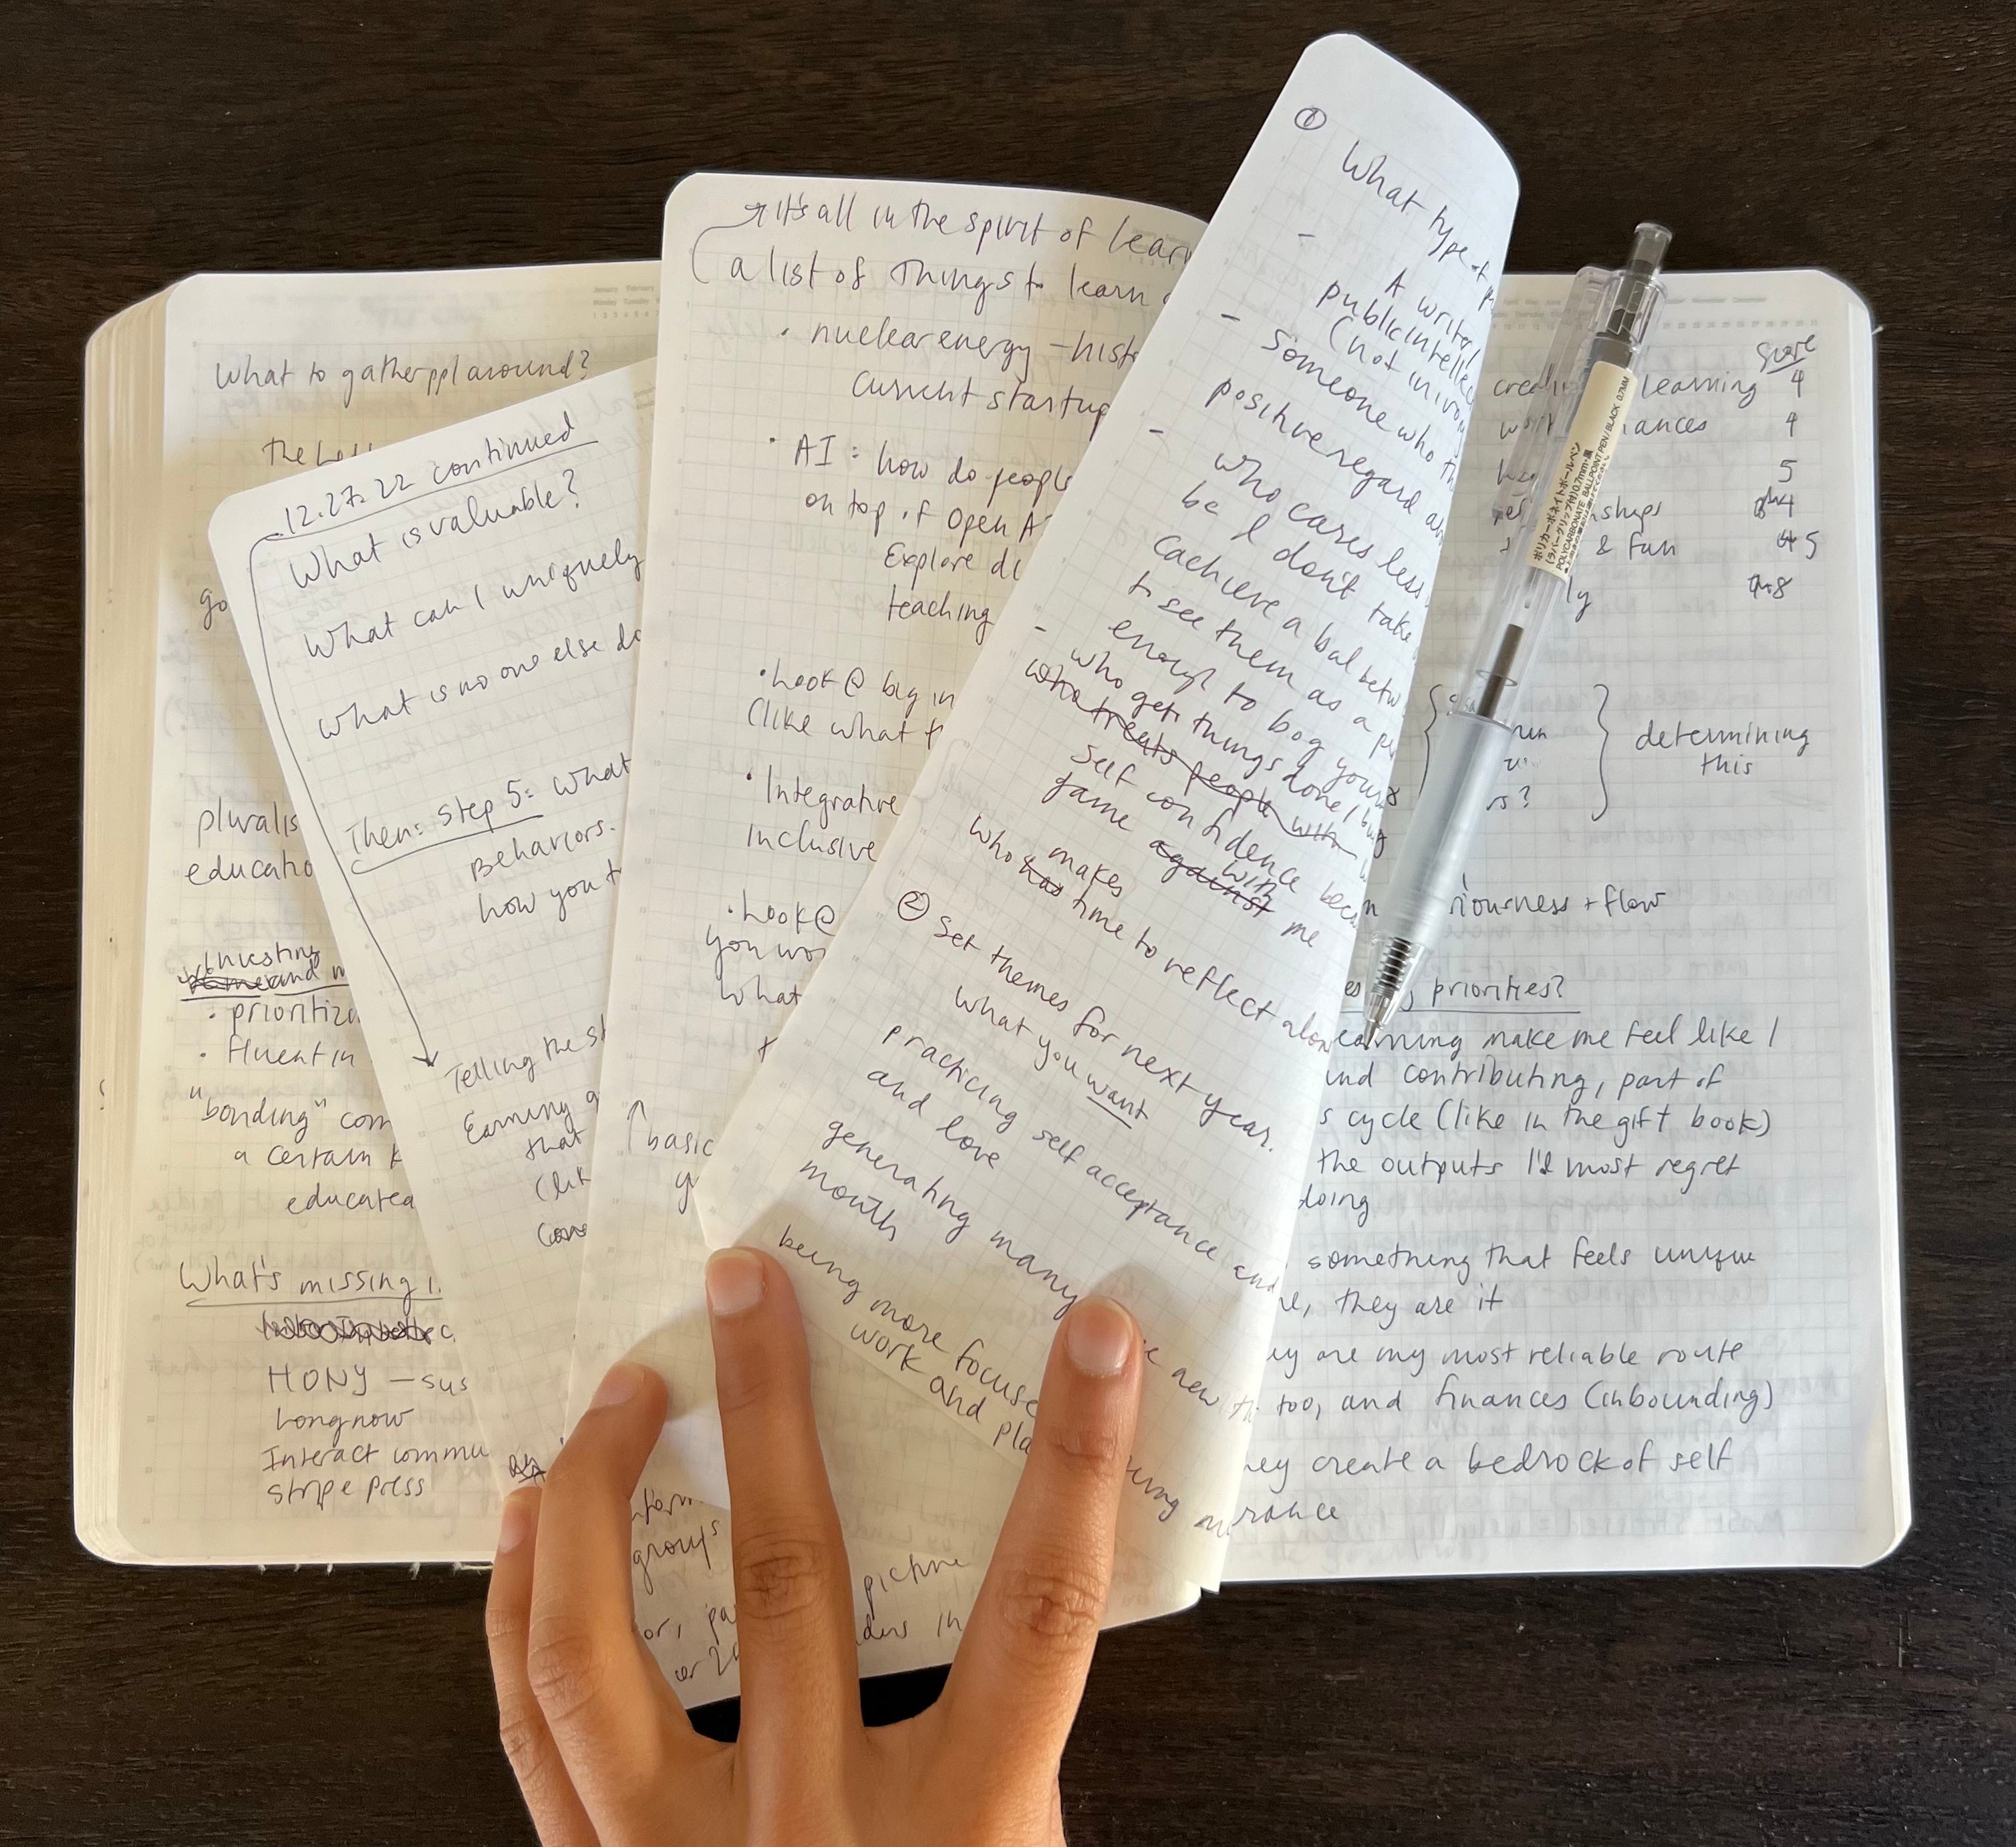 What to gather ppl around?
the
go
pluralis
educatio
investing
and
• prioritizi
• fluent in
"bonding" com
a certain k
educated
What's missing i
HONY — sus
Longnow
Interact commu
Stripe press
12.27.22 continued
What is valuable?
What can I uniquely
What is no one else do
Then: Step 5: What
Behaviors.
how you t
Telling the st
Earning a
that
(lik
it's all in the spirit of learn
a list of things to learn
• nuclear energy — histo
current startup
• AI: how do people
on top of Open A
Explore di
teaching
• Look @ big in
(like what t
• Integrative
Inclusive
• Look @
you wo
what
↑ basic
y
inform
groups
picture
or, pa
in
①
What type of p
- A writer/
public intellec
(not in ivor
- Someone who th
positive regard
- who cares less
bc I don't take
(achieve a bal betw
to see them as a pe
enough to bog yours
- who gets things done/
who treats people with
self confidence beca
game against with me
who has makes time to reflect alon
② Set themes for next year.
What you want
practicing self acceptance and
and love
generating many new
month
being more focuse
work and pla
Score
learning 4
ances 4
5
ships 4
& fun 5
ly 8
determining
this
rs?
iourness + flow
priorities?
earning make me feel like I
and contributing, part of
s cycle (like in the gift book)
the outputs I'd most regret
doing
something that feels unique
me, they are it
ey are my most reliable route
too, and finances (inbounding)
hey create a bedrock of self
ポリカーボネイトボールペン
(ラバーグリップ付)0.7mm・黒
POLYCARBONATE BALLPOINT PEN/BLACK 0.7MM